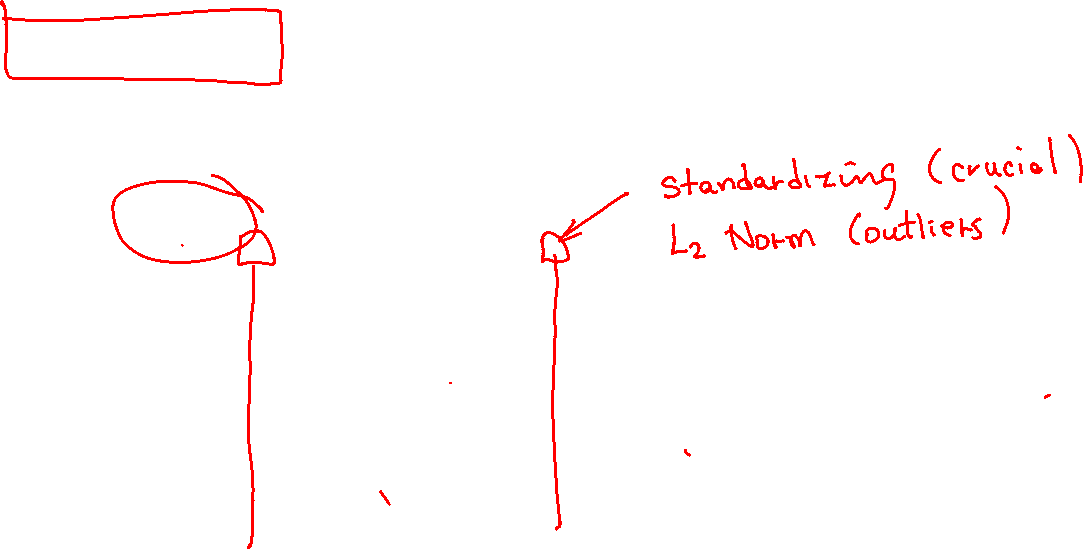 standardizing (crucial)
L₂ Norm (outliers)